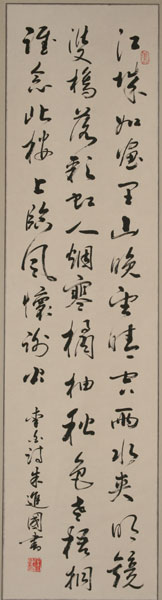 江城如畫里山晚望晴空兩水夾明鏡
雙橋落彩虹人烟寒橘柚秋色老梧桐
誰念北樓上臨風懷謝公 李白詩朱進國書